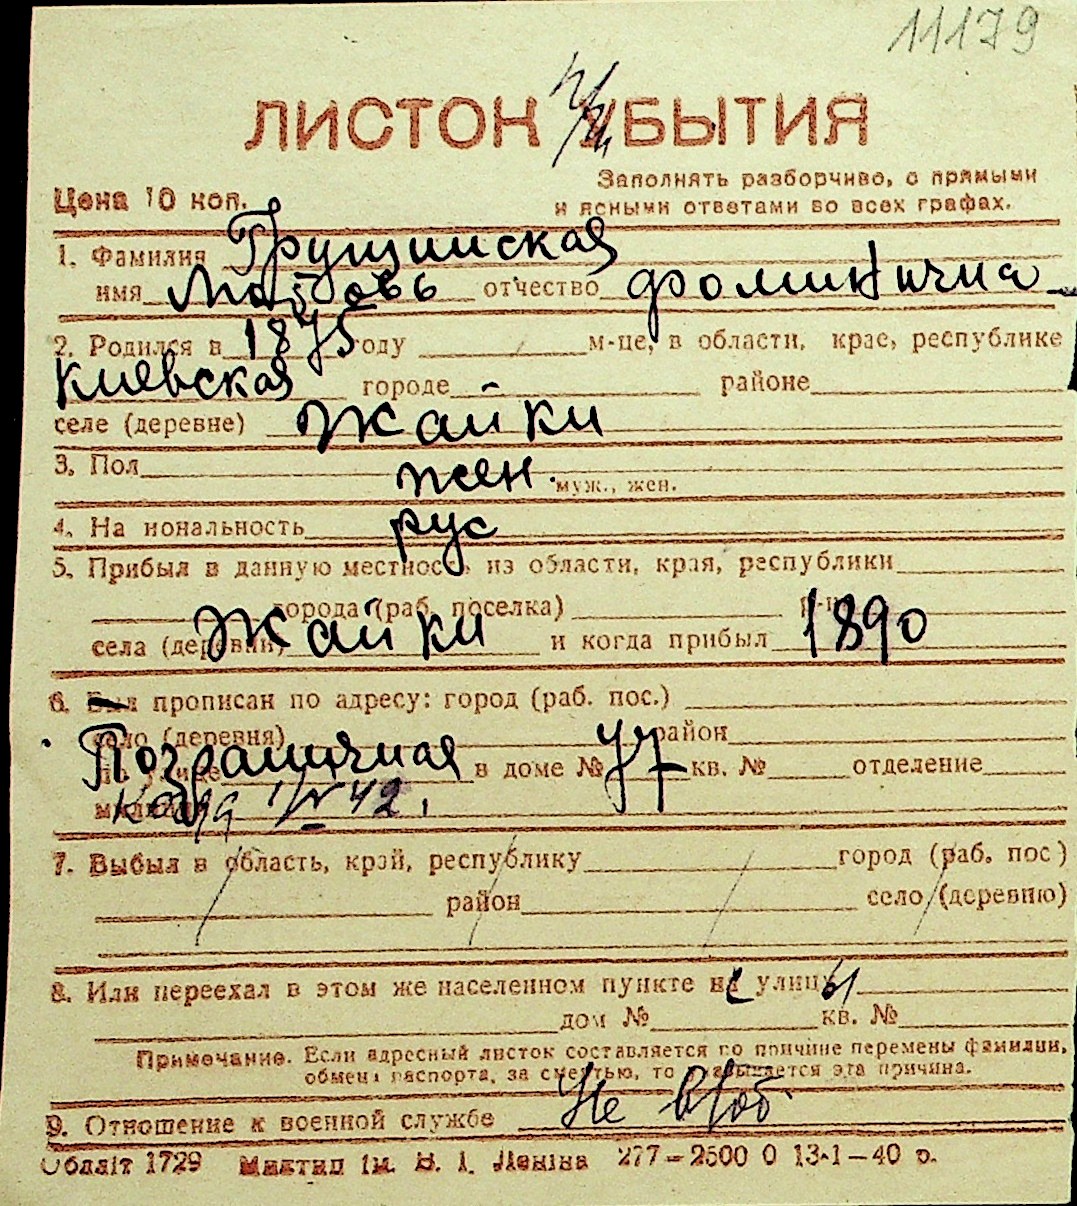 11179
ЛИСТОК УБЫТИЯ
Заполнять разборчиво, с прямыми
Цена 10 коп. и ясными ответами во всех графах.
1. Фамилия Грущинская
имя Любовь отчество Фоминична
2. Родился в 1875 году м-це, в области, крае, республике
Киевская городе районе
селе (деревне) Жайки
3. Пол жен. муж., жен.
4. На иональность рус
5. Прибыл в данную местность из области, края, республики
города (раб. поселка) р-на
села (деревни) Жайки и когда прибыл 1890
6. Был прописан по адресу: город (раб. пос.)
село (деревня) район
по улице Пограничная в доме № 47 кв. № отделение
милиции 42
7. Выбыл в область, край, республику город (раб. пос)
район село (деревню)
8. Или переехал в этом же населенном пункте на улицы
дом № кв. №
Примечание. Если адресный листок составляется по причине перемены фамилии,
обмена паспорта, за смертью, то указывается эта причина.
9. Отношение к военной службе Не в/об.
Облліт 1729 Миктип ім. В. І. Леніна 277—2500 0 13-1—40 р.